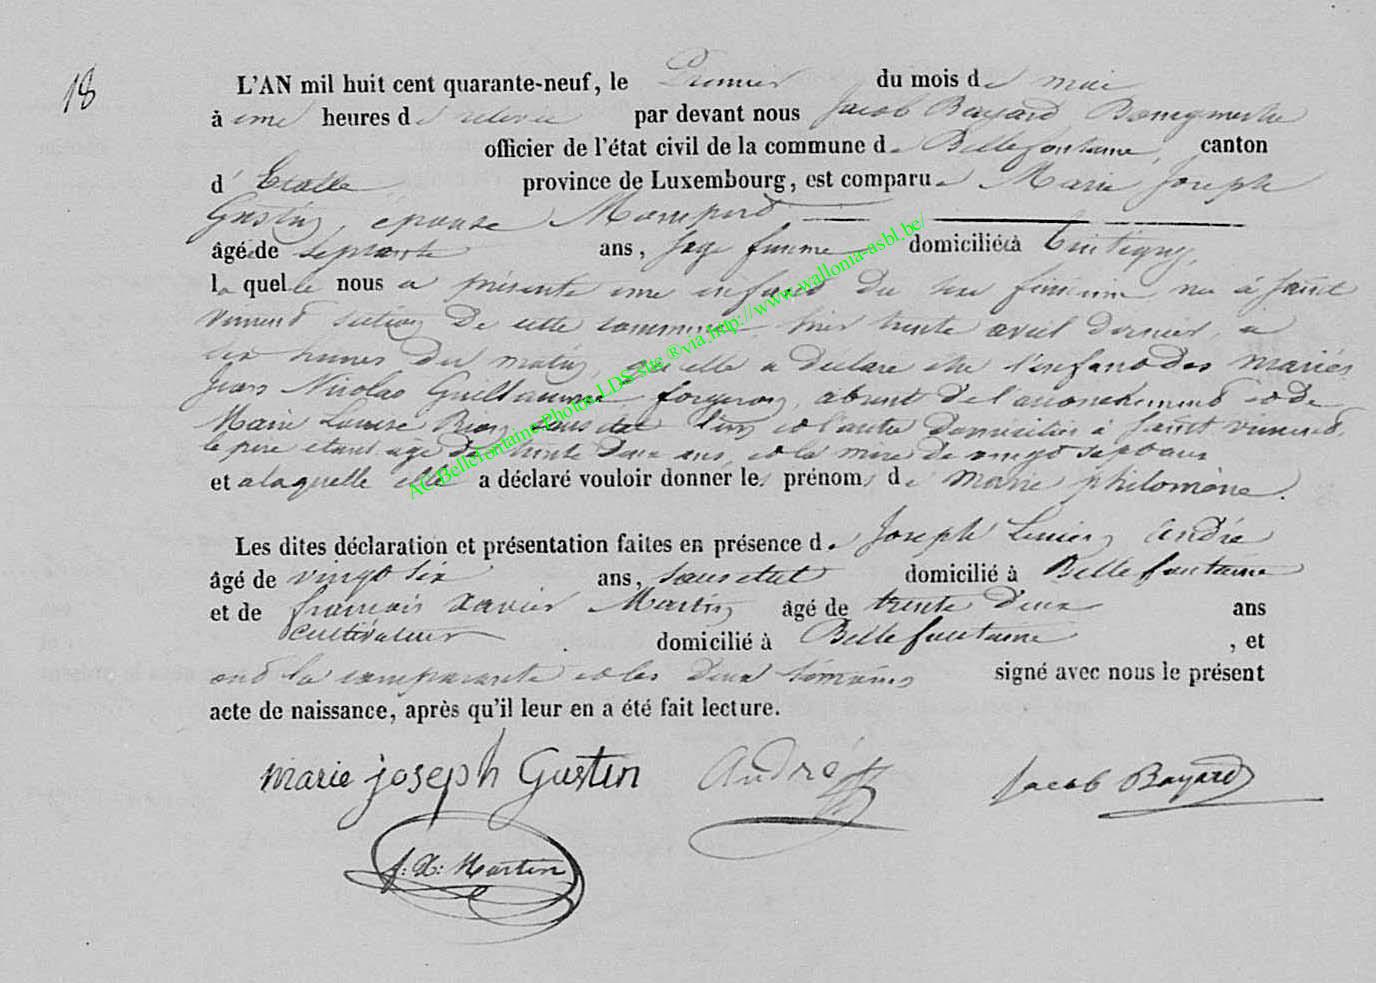 18
L'AN mil huit cent quarante-neuf, le Premier du mois de mai
à une heures de relevée par devant nous Jacob Bayard Bourgmestre
officier de l'état civil de la commune de Bellefontaine, canton
d' Etalle province de Luxembourg, est comparue Marie Joseph
Gustin, épouse
âgée de septante ans, sage femme domiciliée à Tintigny,
laquelle nous a présenté une enfant du sexe féminin né à Saint
Vincent section de cette commune, hier trente avril dernier, à
six heures du matin, qu'elle a déclaré être l'enfant des mariés
Jean Nicolas Guillaume forgeron, absent de l'accouchement et de
Marie Louise l'un et l'autre domiciliés à Saint Vincent,
le père étant âgé de trente deux ans, et la mère de vingt sept ans
et a laquelle elle a déclaré vouloir donner les prénoms de Marie philomène.
Les dites déclaration et présentation faites en présence de Joseph Lucien André
âgé de vingt six ans, sans etat domicilié à Bellefontaine
et de françois Xavier Martin âgé de trente deux ans
cultivateur domicilié à Bellefontaine, et
ont la comparante et les deux témoins signé avec nous le présent
acte de naissance, après qu'il leur en a été fait lecture.
marie joseph Gustin André Jacob Bayard
f: X: Martin
AC Bellefontaine Photos LDS site ® via http://www.wallonia-asbl.be/